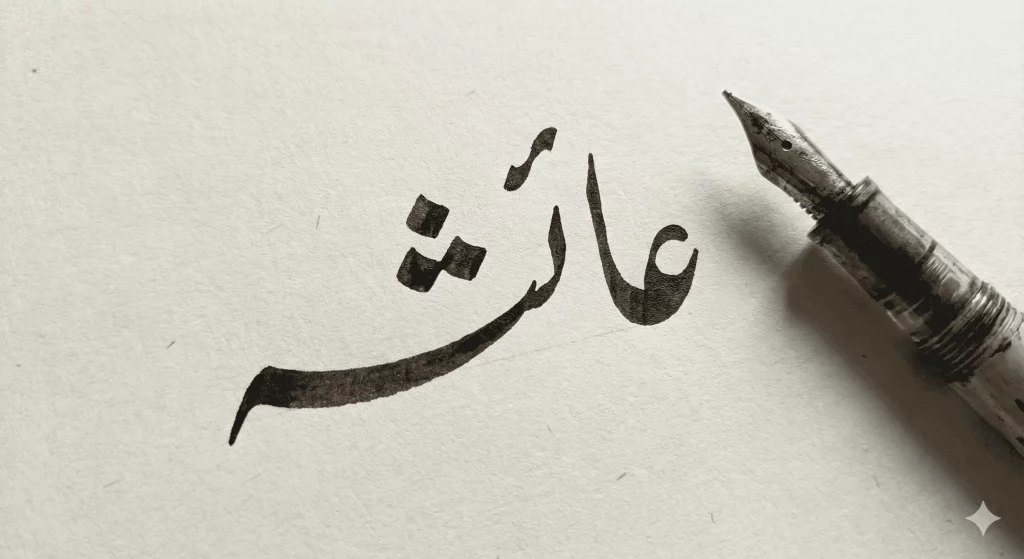 عائشہ